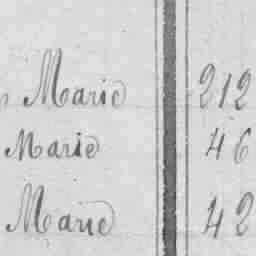 Marie 212
Marie 46
Marie 42